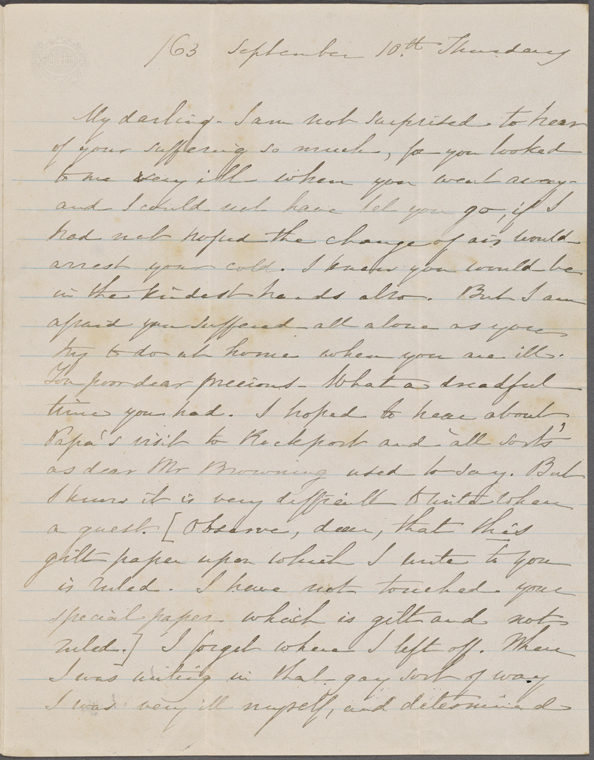 /63 September 10th. Thursday
My darling - I am not surprised to hear
of your suffering so much, for you looked
to me very ill when you went away -
and I could not have let you go, if I
had not hoped the change of air would
arrest your cold. I knew you would be
in the kindest hands also. But I am
afraid you suffered all alone as you
try to do at home when you are ill.
You poor dear precious - What a dreadful
time you had. I hoped to hear about
Papa's visit to Rockport and "all sorts"
as dear Mr Browning used to say. But
I know it is very difficult to write when
a guest. [Observe, dear, that this
gilt paper upon which I write to you
is ruled. I have not touched your
special paper which is gilt and not
ruled.] I forget where I left off. When
I was writing in that gay sort of way
I was very ill myself, and determined